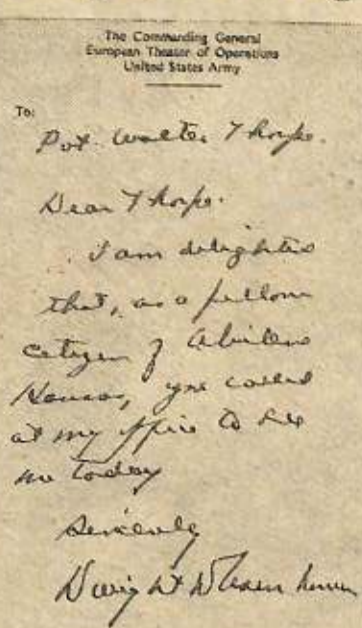 The Commanding General
European Theater of Operations
United States Army
To:
Pvt. Walter Thorpe.
Dear Thorpe.
I am delighted
that, as a fellow
citizen of Abilene
Kansas, you called
at my office to see
me today
Sincerely
Dwight D Eisenhower